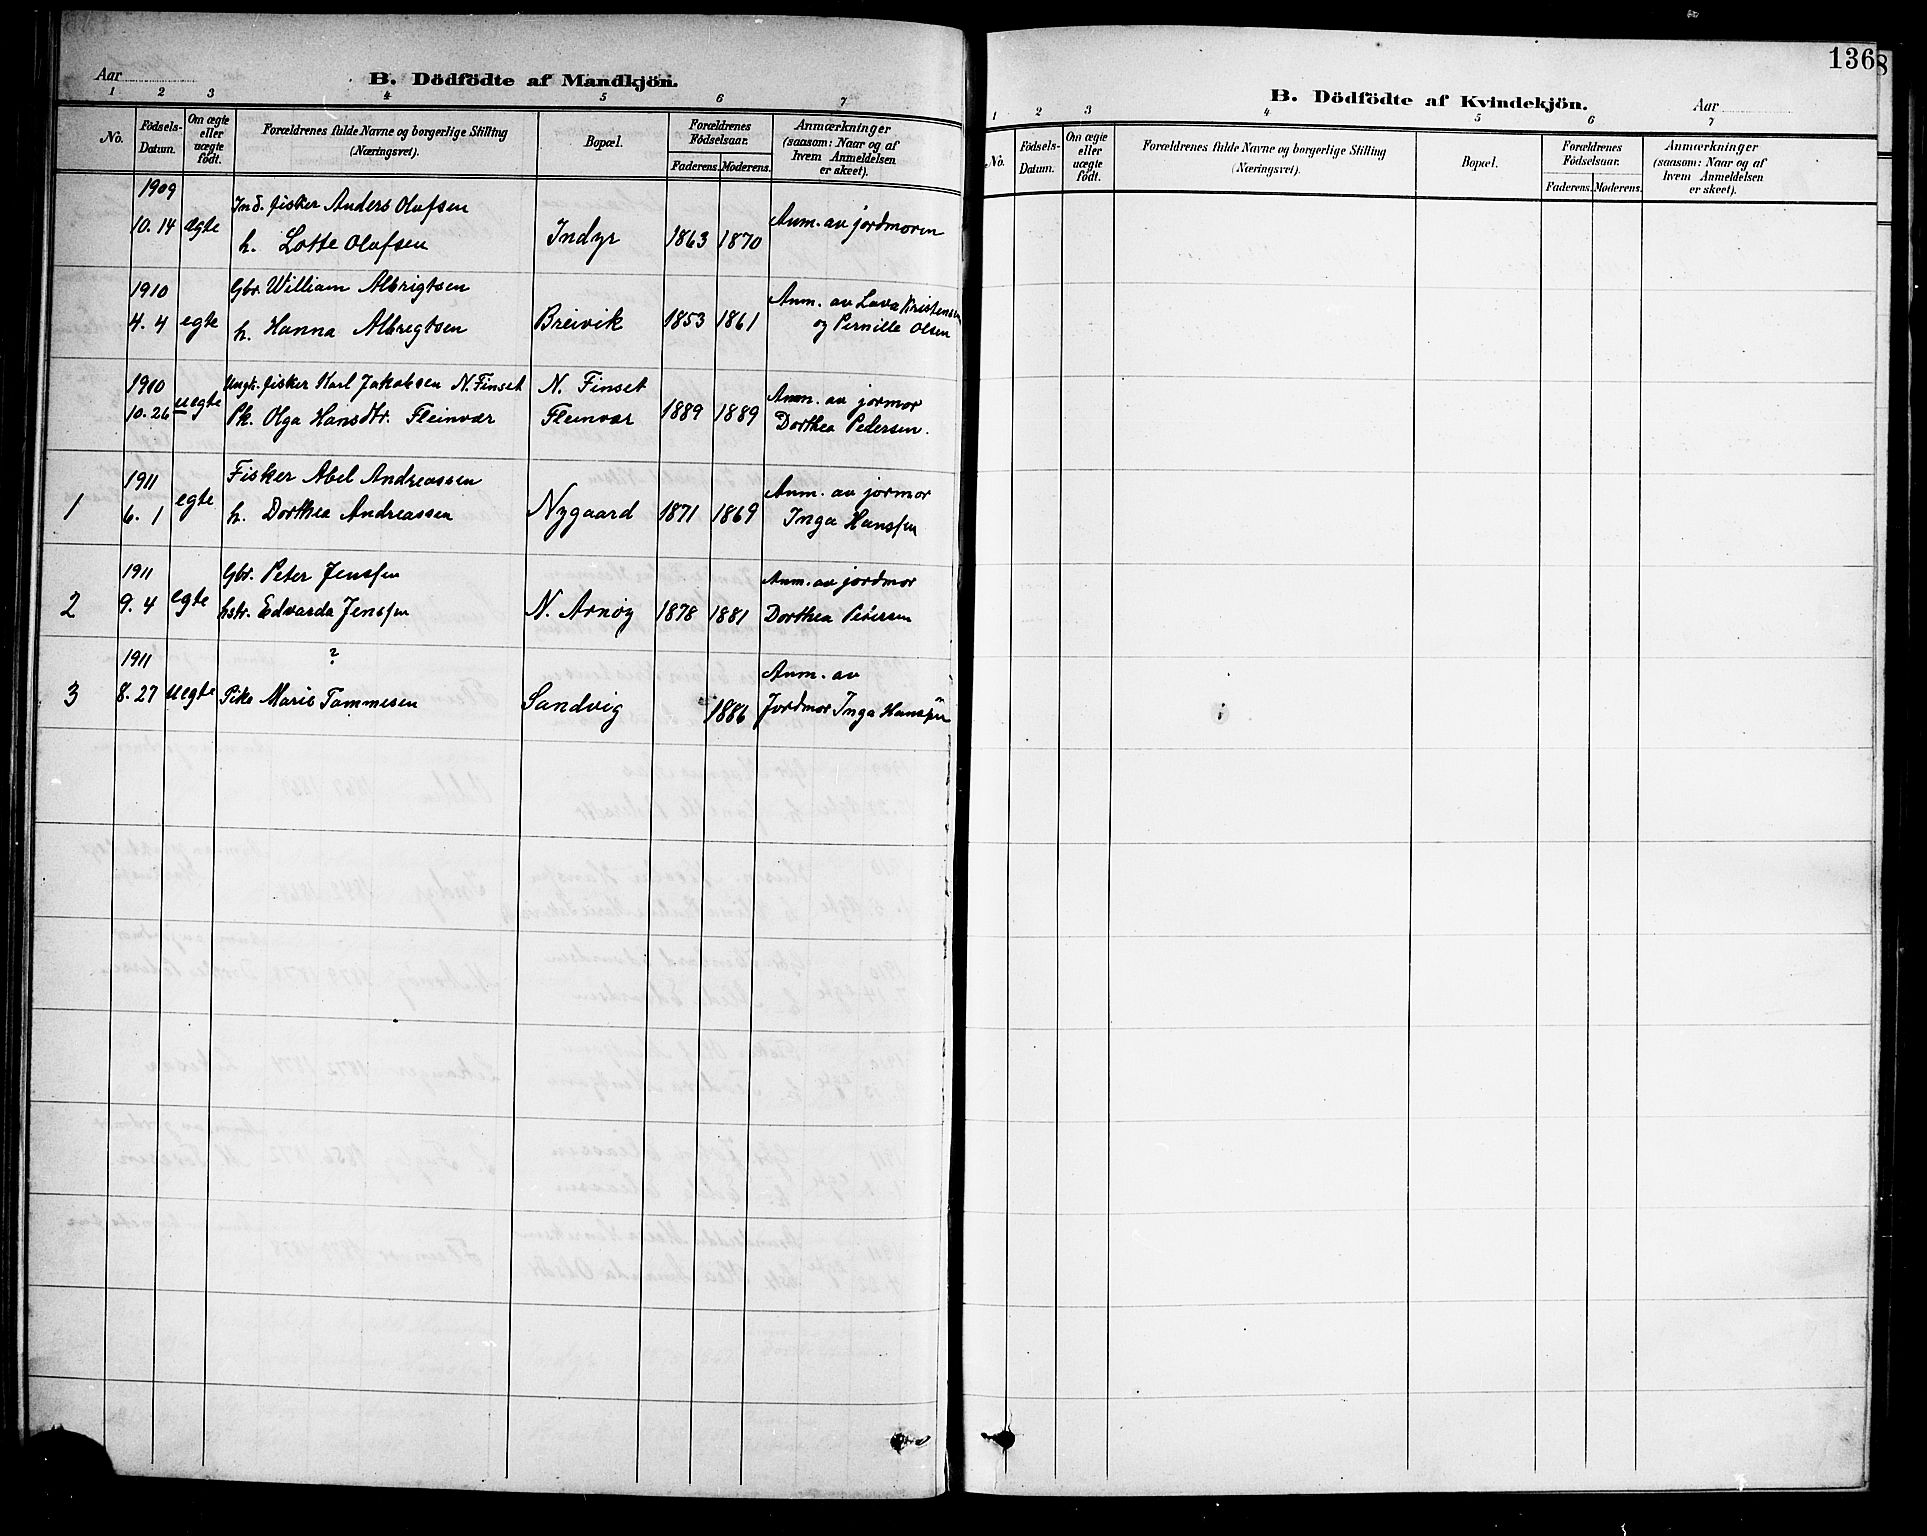 Aar
B. Dödfödte af Mandkjön.
1 2 3 4 5 6 7
No. Födsels-Datum. Om ægte eller uægte födt. Forældrenes fulde Navne og borgerlige Stilling (Næringsvei). Bopæl. Forældrenes Födselsaar. Faderens. Moderens. Anmærkninger (saasom: Naar og af hvem Anmeldelsen er skeet).
1909 Ind. fisker Anders Olafsen
10. 14 ægte h. Lotte Olafsen Indyr 1863 1870 Anm. av jordmoren
1910 Gbr. William Albrigtsen Anm. av Lava Kristensen
4. 4 egte h. Hanna Albregtsen Breivik 1853 1861 og Pernille Olsen
1910 Ungk. fisker Karl Jakobsen N. Finset N. Finset Anm. av jormor
10. 26 uegte Pk. Olga Hansdtr. Fleinvær Fleinvær 1889 1889 Dorthea Pedersen.
1911 Fisker Abel Andreassen Anm. av jormor
1 6. 1 egte h. Dorthea Andreassen Nygaard 1871 1869 Inga Hanssen
1911 Gbr. Peter Jenssen Anm. av jordmor
2 9. 4 egte hstr. Edvarda Jenssen N. Arnøy 1878 1881 Dorthea Pedersen
1911 ? Anm. av
3 8. 27 uegte Pike Marie Tommesen Sandvig 1886 Jordmor Inga Hanssen
136
8
B. Dödfödte af Kvindekjön.
Aar
1 2 3 4 5 6 7
No. Födsels-Datum. Om ægte eller uægte födt. Forældrenes fulde Navne og borgerlige Stilling (Næringsvei). Bopæl. Forældrenes Födselsaar. Faderens. Moderens. Anmærkninger (saasom: Naar og af hvem Anmeldelsen er skeet).